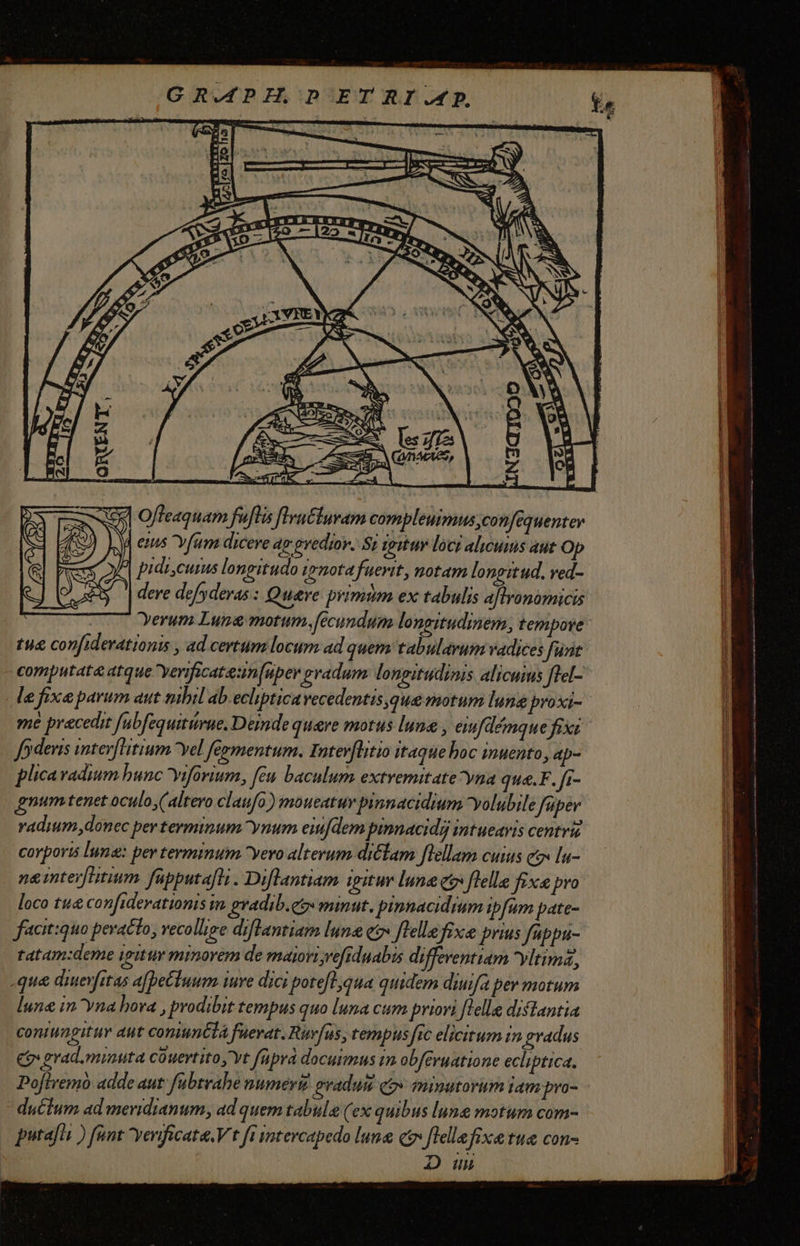 GRAPH. PETRI AP.
LA SPHERE DE LVIVRE
ORIENT,
OCCIDENT
les isles
Canaries,
Osteaquam fustis structuram compleuimus,consequenter
eius vsum dicere aggredior. Si igitur loci alicuius aut Op
pidi,cuius longitudo ignota fuerit, notam longitud. red-
dere desyderas : Quære primùm ex tabulis astronomicis
verum Lunæ motum,secundum longitudinem, tempore
tuæ considerationis , ad certum locum ad quem tabularum radices sunt
computatæ atque verificatæ:insuper gradum longitudinis alicuius stel-
læ fixæ parum aut nihil ab ecliptica recedentis,quæ motum lunæ proxi-
mè præcedit subsequitúrue. Deinde quære motus lunæ , eiusdémque fixi
syderis interstitium vel segmentum. Interstitio itaque hoc inuento, ap-
plica radium hunc visorium, seu baculum extremitate vna quæ.F. si-
gnum tenet oculo,(altero clauso) moueatur pinnacidium volubile super
radium,donec per terminum vnum eiusdem pinnacidij intuearis centrũ
corporis lunæ: per terminum vero alterum dictam stellam cuius & lu-
næ interstitium supputasti . Distantiam igitur lunæ & stellæ fixæ pro
loco tuæ considerationis in gradib.& minut. pinnacidium ipsum pate-
facit:quo peracto, recollige distantiam lunæ & stellæ fixæ prius suppu-
tatam:deme igitur minorem de maiori,residuabis differentiam vltimã,
quæ diuersitas aspectuum iure dici potest,qua quidem diuisa per motum
lunæ in vna hora , prodibit tempus quo luna cum priori stellæ distantia
coniungitur aut coniuncta fuerat. Rursus, tempus sic elicitum in gradus
& grad.minuta cõuertito,vt suprà docuimus in obseruatione ecliptica.
Postremò adde aut subtrahe numerũ graduũ & minutorum iam pro-
ductum ad meridianum, ad quem tabulæ (ex quibus lunæ motum com-
putasti ) sunt verificatæ.Vt si intercapedo lunæ & stellæ fixæ tuæ con-
D iiii